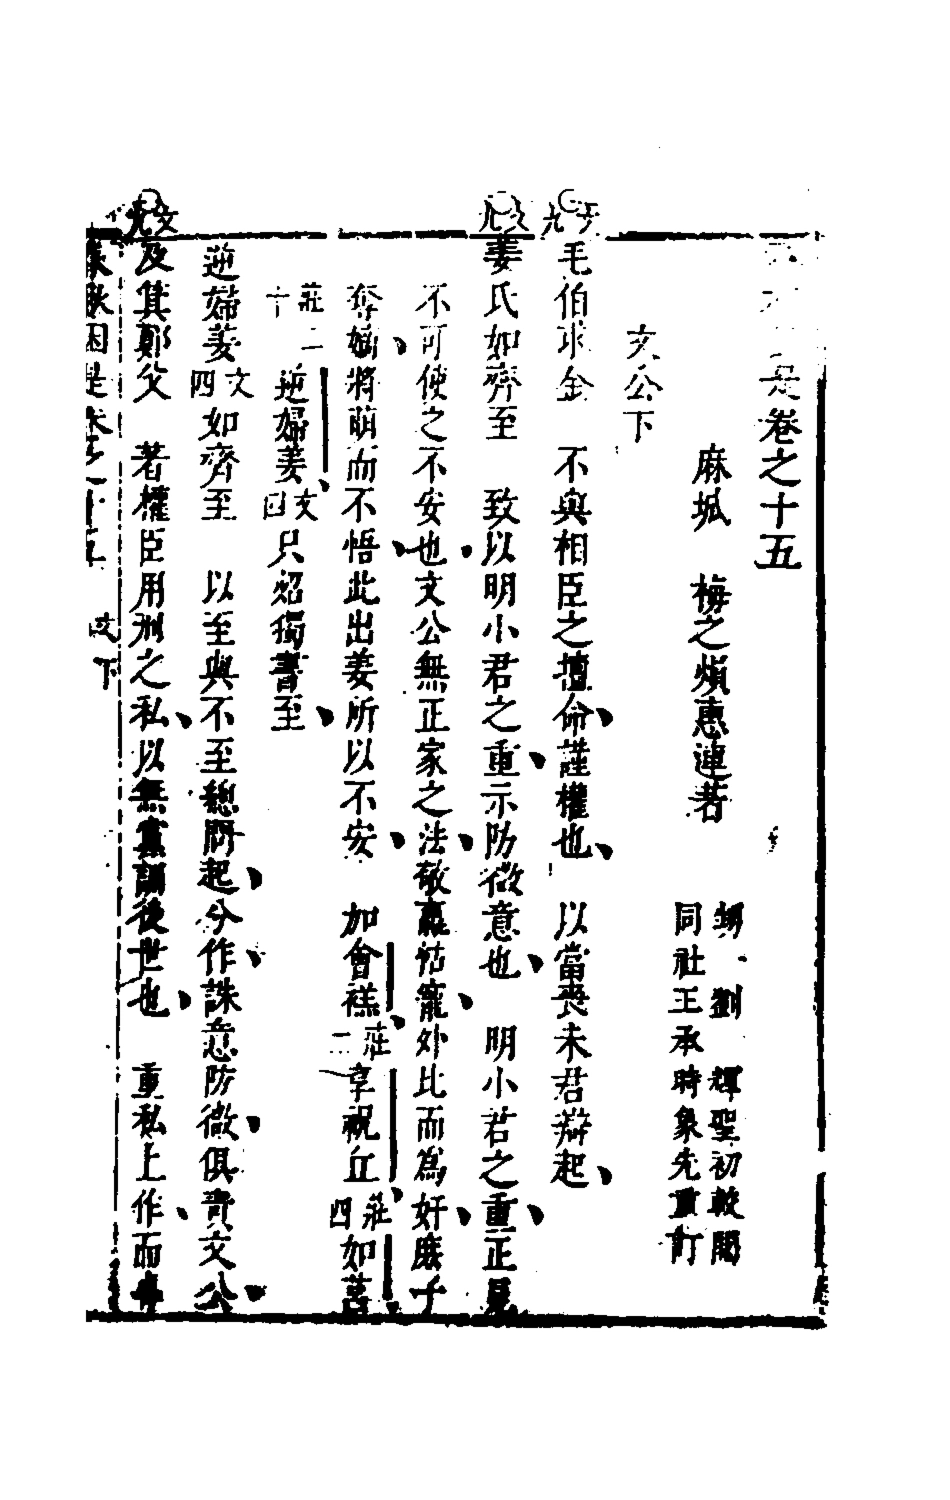 是卷之十五
麻城 梅之熉惠連著
甥 劉 輝聖初較閱
同社王承時象先重訂
文公下
文九
毛伯求金 不與相臣之擅命謹權也 以當喪未君辯起
文九
姜氏如齊至 致以明小君之重示防微意也 明小君之重正見
不可使之不安也文公無正家之法敬嬴怙寵外比而為奸庶子
奪嫡將萌而不悟此出姜所以不安 加會禚莊二享祝丘莊四如莒
莊二十逆婦姜文四只炤獨書至
逆婦姜文四如齊至 以至與不至總問起分作誅意防微俱責文公
文九
及箕鄭父 著權臣用刑之私以無黨訓後世也 重私上作而專
春秋因是卷之十五 文下